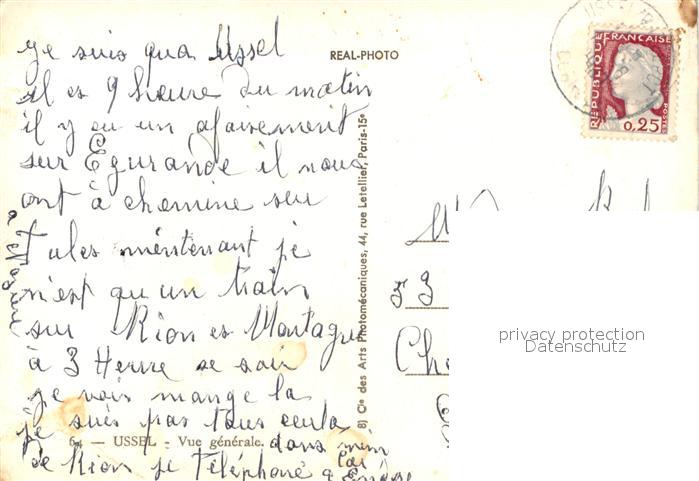 ge suis qua Ussel
il es 9 heure du matin
il y eu un afaisement
sur Egurande il nous
ont à chemine seu
Tules méntenant je
n'est qu un train
sur Rion es Montagne
à 3 Heure se soir
je vois mange la
je suis pas tous seula
dans
de Rion je téléphoné a
a
6 — USSEL - Vue générale.
REAL-PHOTO
8) Cie des Arts Photomécaniques, 44, rue Letellier, Paris-15e
USSEL
REPUBLIQUE FRANCAISE
0,25
POSTES
privacy protection
Datenschutz